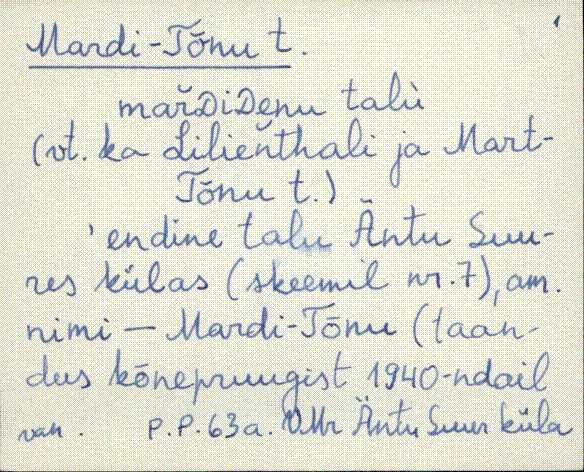 Mardi-Tõnu t.
marˇDiDenu talù
(vt. ka Lilienthali ja Mart-
Tõnu t.)
'endine talu Äntu Suu-
res külas (skeemil nr. 7), am.
nimi — Mardi-Tõnu (taan-
dus kõnepruugist 1940-ndail
van. P.P. 63a. VMr Äntu Suur küla